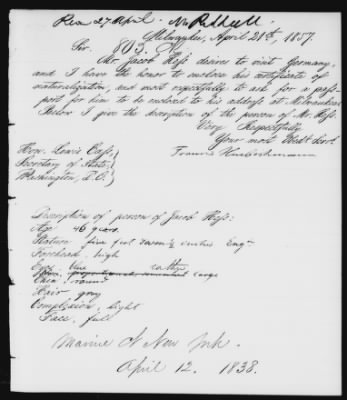 Rec 27 April. Mr Riddall.
Milwaukee, April 21st, 1857.
Sir. 803.
Mr. Jacob Hess desires to visit Germany,
and I have the honor to enclose his certificate of
naturalization, and most respectfully to ask for a pass-
port for him to be enclosed to his address at Milwaukee.
Below I give the description of the person of Mr. Hess.
Very Respectfully
Your most Obdt Servt.
Francis
Hon. Lewis Cass,
Secretary of State,
Washington, D.C.
Description of person of Jacob Hess:
Age 46 years.
Stature five feet inches Engl.
Forehead, high
Eyes: blue
rather large
Chin: round
Hair gray
Complexion, light
Face, full
Marine Ct New York.
April 12. 1838.